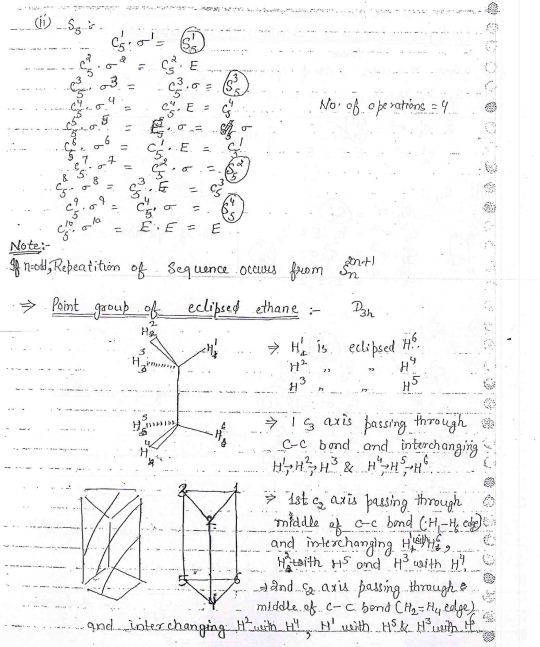 (ii) S₅ :-
C₅¹ · σ¹ = S₅¹
C₅² · σ² = C₅² · E
C₅³ · σ³ = C₅³ · σ = S₅³
C₅⁴ · σ⁴ = C₅⁴ · E = C₅⁴
No. of operations = 4
C₅⁵ · σ⁵ = E · σ = σ
C₅⁶ · σ⁶ = C₅¹ · E = C₅¹
C₅⁷ · σ⁷ = C₅² · σ = S₅²
C₅⁸ · σ⁸ = C₅³ · E = C₅³
C₅⁹ · σ⁹ = C₅⁴ · σ = S₅⁴
C₅¹⁰ · σ¹⁰ = E · E = E
Note:-
If n=odd, Repeatition of sequence occurs from Sₙ²ⁿ⁺¹
⇒ Point group of eclipsed ethane :- D₃ₕ
H²
H¹
H³
H⁵
H⁶
H⁴
⇒ H¹ is eclipsed H⁶
H² ,, ,, H⁴
H³ ,, ,, H⁵
⇒ 1 C₃ axis passing through
C-C bond and interchanging
H¹→H²→H³ & H⁴→H⁵→H⁶
3 1
2
5 6
4
⇒ 1st C₂ axis passing through
middle of C-C bond (H₁-H₆ edge)
and interchanging H¹ with H⁶,
H² with H⁵ and H³ with H⁴.
→ 2nd C₂ axis passing through
middle of C-C bond (H₂=H₄ edge)
and interchanging H² with H⁴, H¹ with H⁵ & H³ with H⁶